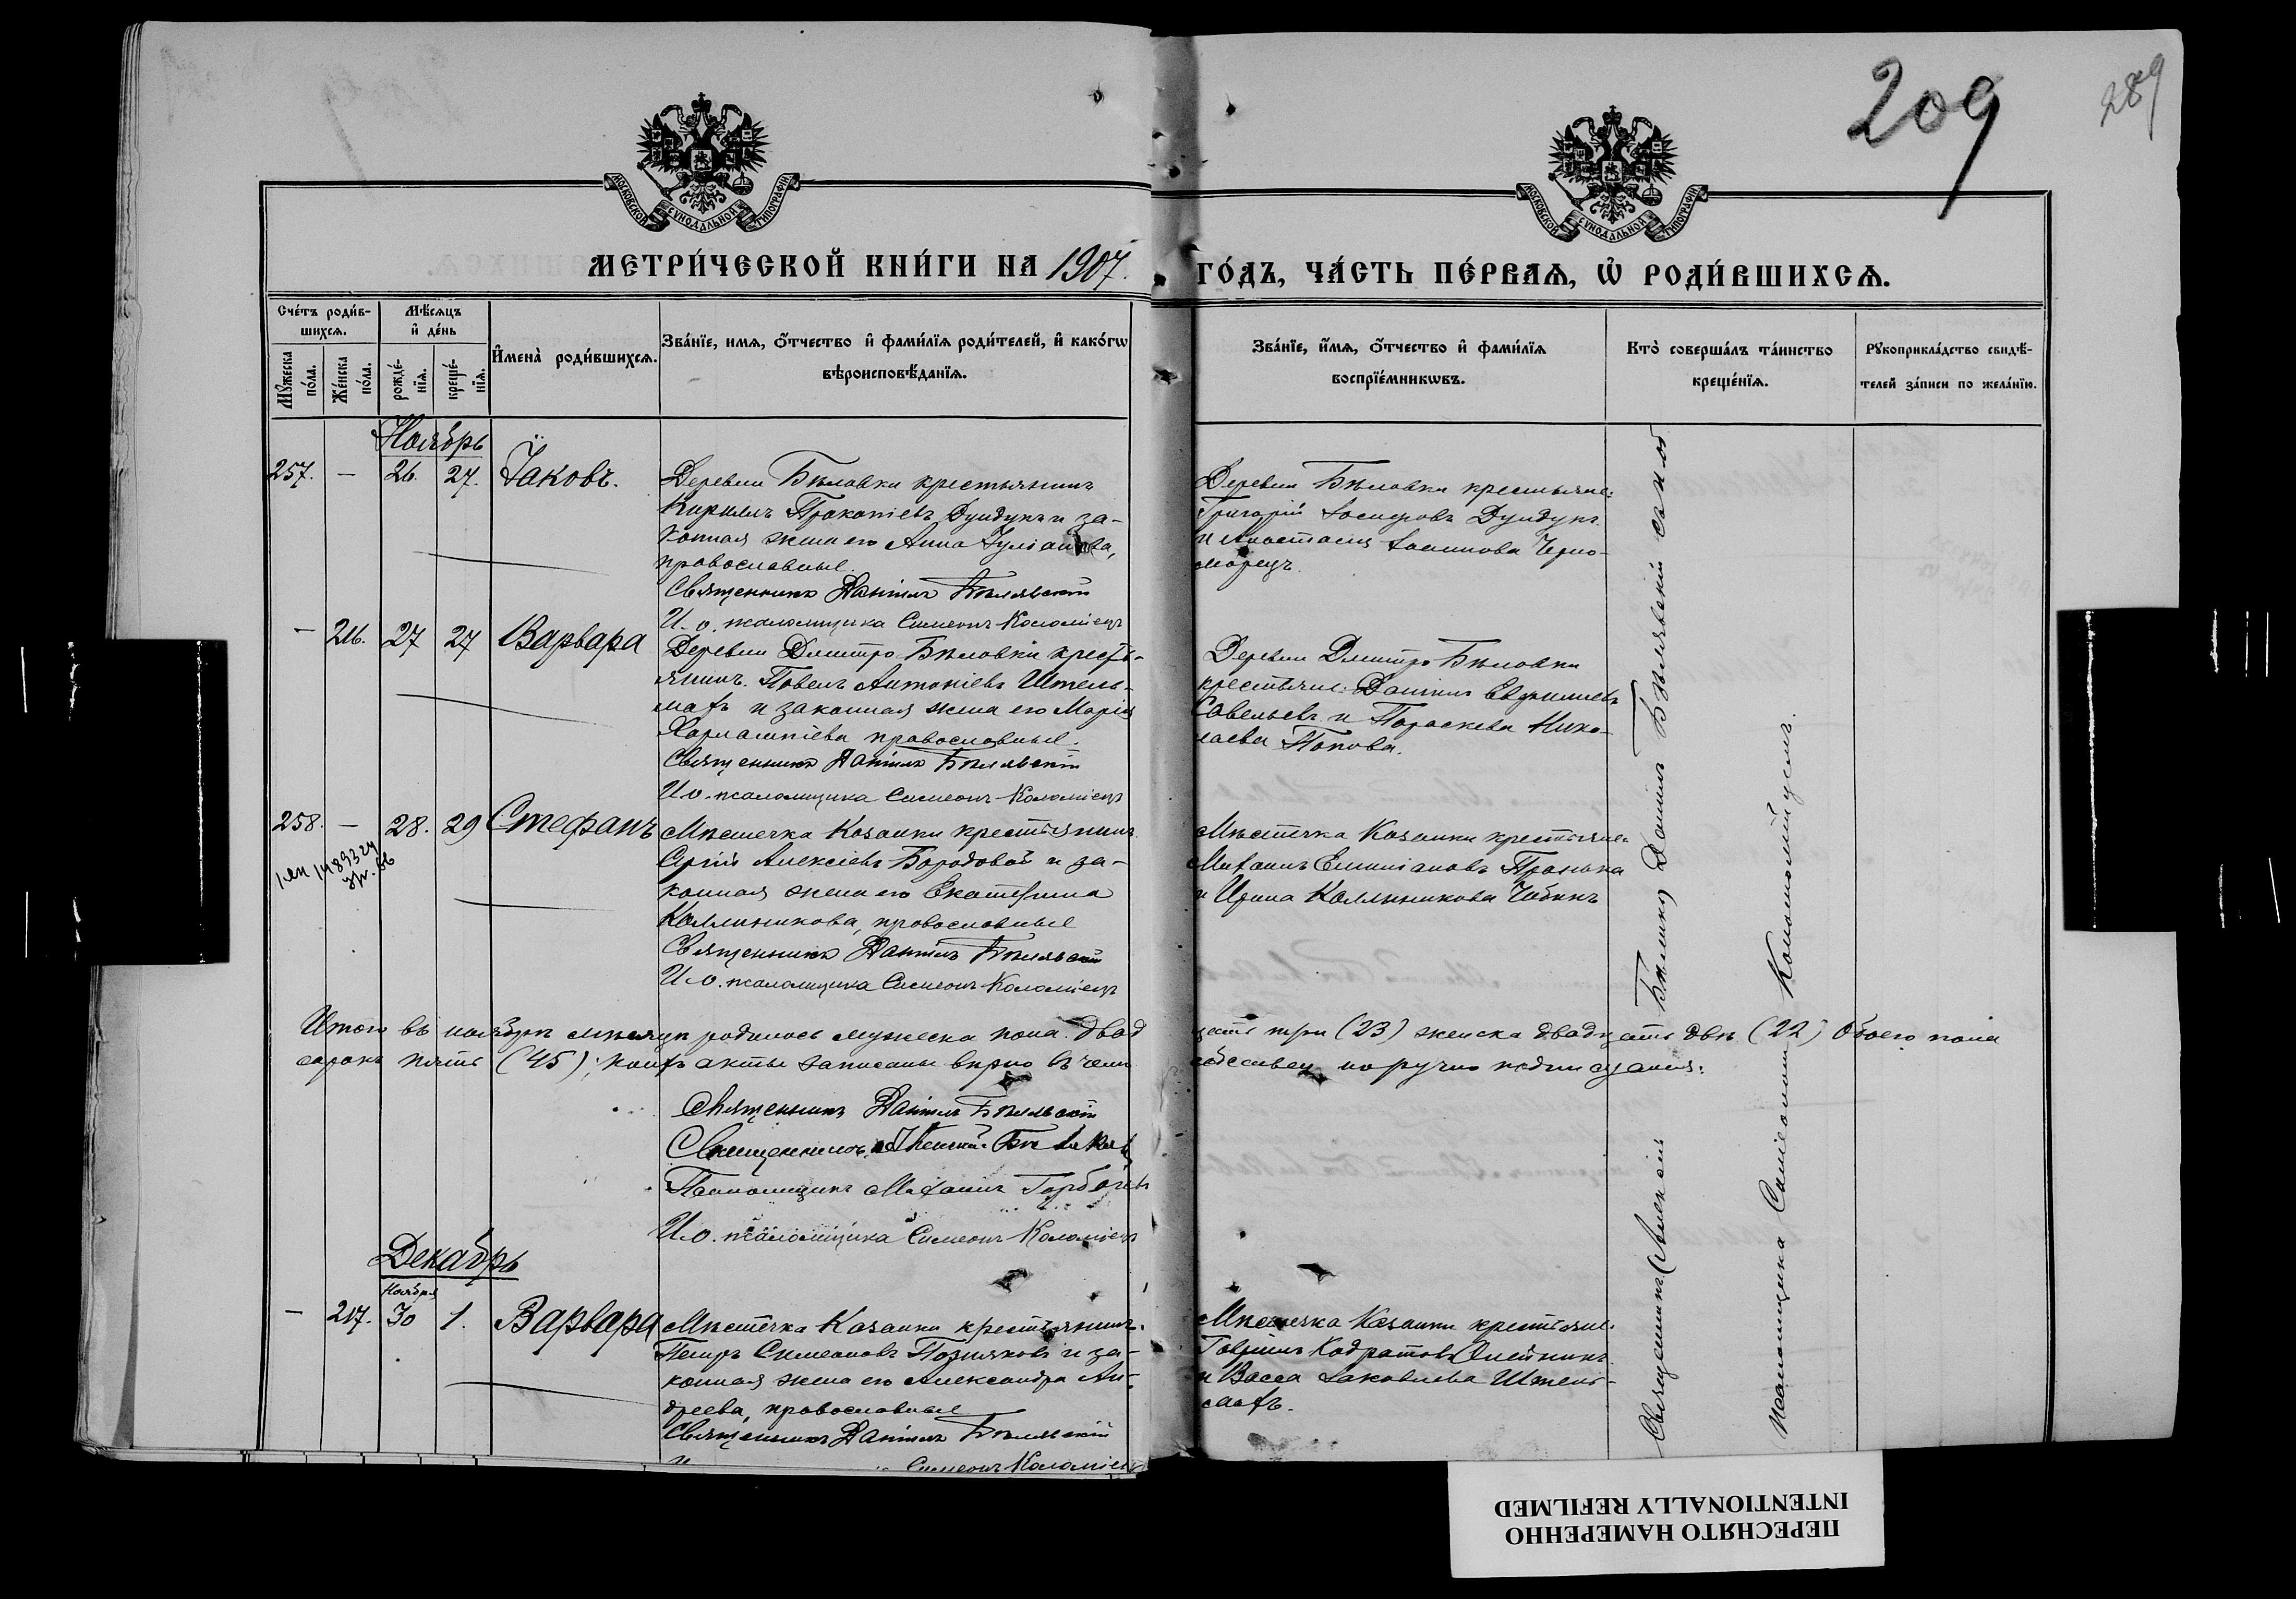 209
289
МОСКОВСКОЙ СѴНОДАЛЬНОЙ ТИПОГРАФІИ
МОСКОВСКОЙ СѴНОДАЛЬНОЙ ТИПОГРАФІИ
МЕТРИ́ЧЕСКОЙ КНИ́ГИ НА 1907. ГО́ДЪ, ЧА́СТЬ ПЕ́РВАѦ, Ѡ҆ РОДИ́ВШИХСѦ.
Сче́тъ роди́в-
шихсѧ.
Мꙋ́жеска по́ла.
Же́нска по́ла.
Мѣ́сѧцъ
и҆ де́нь
рожде́-
нїѧ.
креще́-
нїѧ.
И҆мена̀ роди́вшихсѧ.
Зва́нїе, имѧ, ѻ҆́тчество и҆ фами́лїѧ роди́телей, и҆ како́гѡ
вѣроисповѣ́данїѧ.
Зва́нїе, и҆́мѧ, ѻ҆́тчество и҆ фами́лїѧ
воспрїе́мникѡвъ.
Кто̀ соверша́лъ та́инство
креще́нїѧ.
Рꙋкоприкла́дство свидѣ́-
телей за́писи по жела́нїю.
Ноябрь
257. — 26. 27. Іаковъ.
Деревни Бѣловки крестьянинъ
Кирилъ Прокопіевъ Дундукъ и за-
конная жена его Анна Іуліанова,
православные.
Священникъ Даніилъ Бѣлявскій
И. о. псаломщика Симеонъ Коломіецъ
Деревни Бѣловки крестьяне:
Григорій Іосифовъ Дундукъ
и Анастасія Іоаннова Черно-
морецъ.
— 216. 27 27 Варвара
Деревни Дмитро Бѣловки кресть-
янинъ Павелъ Антоніевъ Штель-
махъ и законная жена его Марія
Харлампіева православные.
Священникъ Даніилъ Бѣлявскій
И. о. псаломщика Симеонъ Коломіецъ
Деревни Дмитро Бѣловки
крестьяне: Даніилъ Евфиміевъ
Савельевъ и Параскева Нико-
лаева Попова.
258. — 28. 29 Стефанъ
Мѣстечка Козанки крестьянинъ
Сергій Алексіевъ Бородовой и за-
конная жена его Екатерина
Каллиникова, православные
Священникъ Даніилъ Бѣлявскій
И. о. псаломщика Симеонъ Коломіецъ
Мѣстечка Козанки крестьяне:
Михаилъ Емиліановъ Пронька
и Ирина Каллиникова Чабикъ
Итого въ ноябрѣ мѣсяцѣ родилось мужеска пола двадцать три (23) женска двадцать двѣ (22) обоего пола
сорокъ пять (45); коихъ акты записаны вѣрно въ чемъ собственноручно подписуемся:
Священникъ Даніилъ Бѣлявскій
Священникъ Алексій
Псаломщикъ Михаилъ Горбачевъ
И. о. псаломщика Симеонъ Коломіецъ
Декабрь
Ноября
— 217. 30 1. Варвара
Мѣстечка Козанки крестьянинъ
Петръ Симеоновъ Позняковъ и за-
конная жена его Александра Ан-
дреева, православные
Священникъ Даніилъ Бѣлявскій
Симеонъ Коломіецъ
Мѣстечка Козанки крестьяне:
Гавріилъ Кодратовъ Олейникъ
и Васса Іаковлева Штель-
махъ.
Священникъ Алексій Бѣликовъ, Даніилъ Бѣлявскій съ и. об.
псаломщика Симеономъ Коломійцемъ.
ПЕРЕСНЯТО НАМЕРЕННО
INTENTIONALLY REFILMED